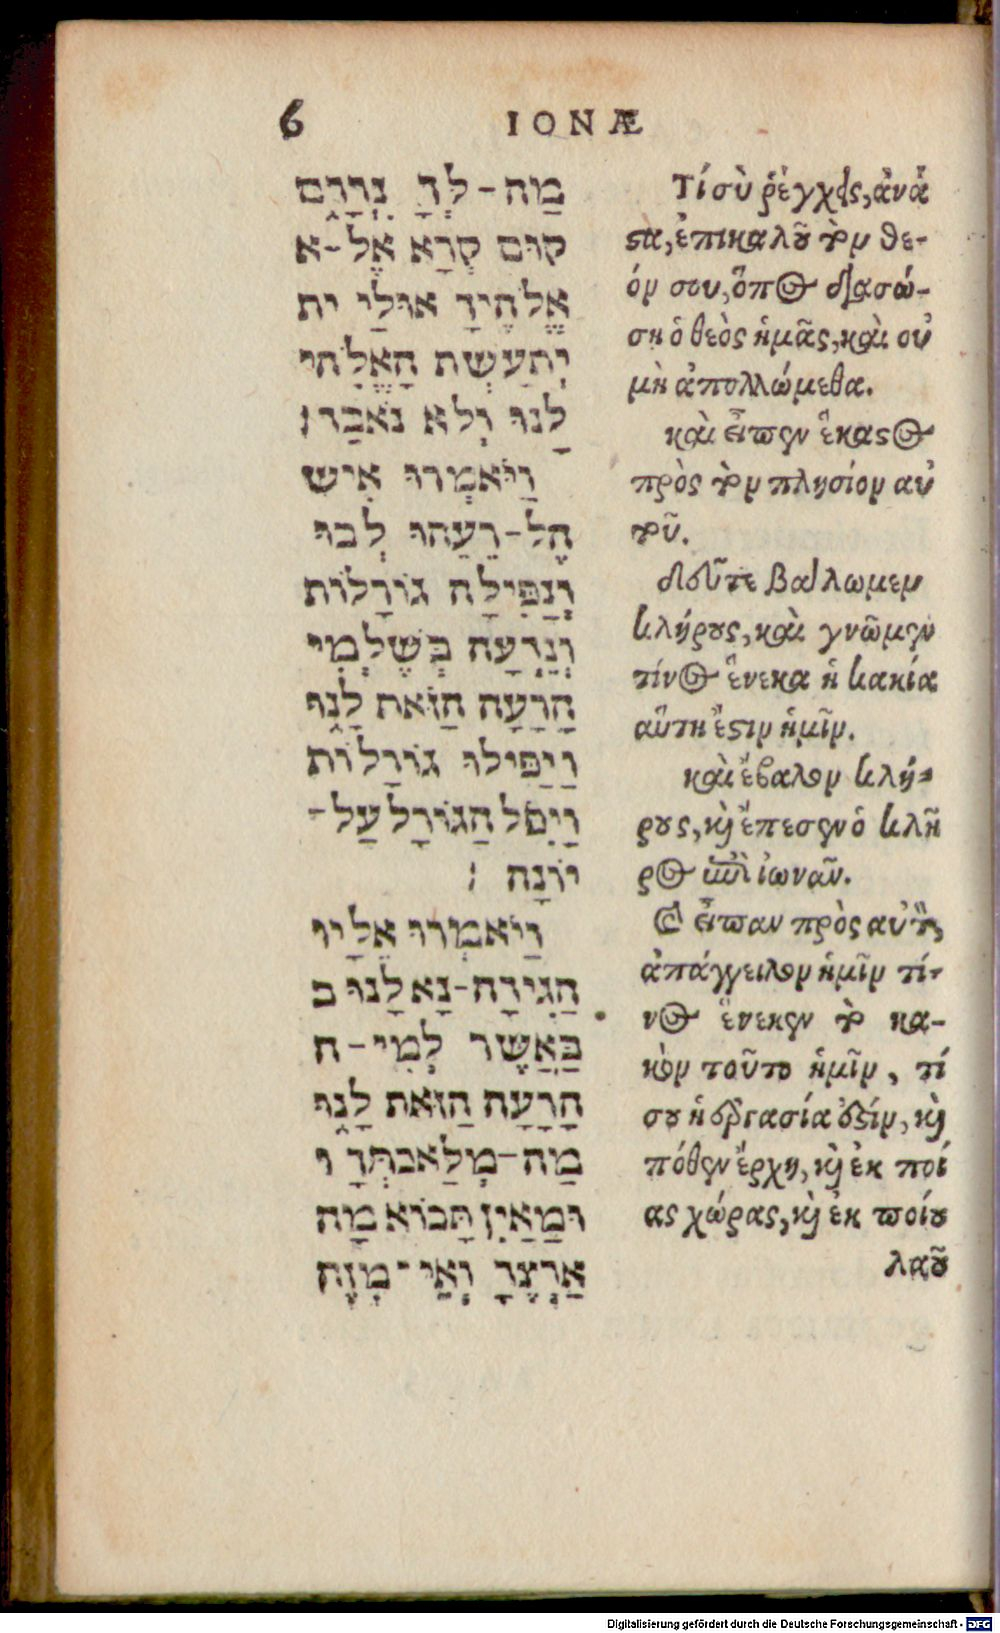 6
IONÆ
מַה-לְּךָ נִרְדָּם
קוּם קְרָא אֶל-א
אֱלֹהֶיךָ אוּלַי ית
יִתְעַשֵּׁת הָאֱלֹהי
לָנוּ וְלֹא נֹאבֵד׃
וַיֹּאמְרוּ אִישׁ
אֶל-רֵעֵהוּ לְכוּ
וְנַפִּילָה גוֹרָלוֹת
וְנֵדְעָה בְּשֶׁלְּמִי
הָרָעָה הַזֹּאת לָנוּ
וַיַּפִּילוּ גּוֹרָלוֹת
וַיִּפֹּל הַגּוֹרָל עַל-
יוֹנָה ׃
וַיֹּאמְרוּ אֵלָיו
הַגִּידָה-נָּא לָנוּ ב
בַּאֲשֶׁר לְמִי-ה
הָרָעָה הַזֹּאת לָנוּ
מַה-מְּלַאכְתְּךָ ו
וּמֵאַיִן תָּבוֹא מָה
אַרְצֶךָ וְאֵי-מִזֶּה
Τί σὺ ῥέγχεις, ἀνά
στα, ἐπικαλοῦ τὸν θε-
όν σου, ὅπως διασώ-
ση ὁ θεὸς ἡμᾶς, καὶ οὐ
μὴ ἀπολλώμεθα.
καὶ εἶπεν ἕκαστος
πρὸς τὸν πλησίον αὐ
τοῦ.
δεῦτε βάλωμεν
κλήρους, καὶ γνῶμεν
τίνος ἕνεκα ἡ κακία
αὕτη ἐστιν ἡμῖν.
καὶ ἔβαλον κλή-
ρους, καὶ ἔπεσεν ὁ κλῆ
ρος ἐπὶ ἰωνᾶν.
Καὶ εἶπαν πρὸς αὐτὸν,
ἀπάγγειλον ἡμῖν τί-
νος ἕνεκεν τὸ κα-
κὸν τοῦτο ἡμῖν, τί
σου ἡ ἐργασία ἐστίν, καὶ
πόθεν ἔρχη, καὶ ἐκ ποί
ας χώρας, καὶ ἐκ ποίου
λαοῦ
Digitalisierung gefördert durch die Deutsche Forschungsgemeinschaft - DFG